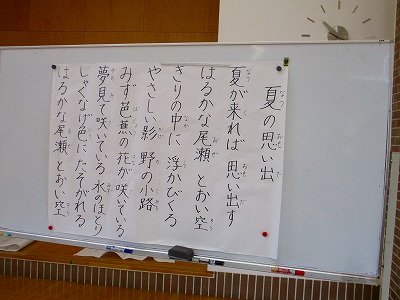 夏の思い出
夏が来れば 思い出す
はるかな尾瀬 とおい空
きりの中に 浮かびくる
やさしい影 野の小路
みず芭蕉の 花が咲いている
夢見て咲いている 水のほとり
しゃくなげ色に たそがれる
はるかな尾瀬 とおい空